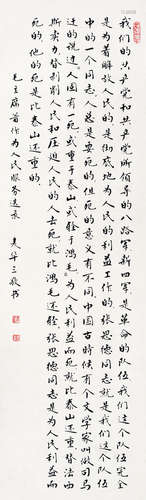 我们的共产党和共产党所领导的八路军新四军是革命的队伍我们这个队伍完全
是为着解放人民的是彻底地为人民的利益工作的张思德同志就是我们这个队伍
中的一个同志人总是要死的但死的意义有不同中国古时候有个文学家叫做司马
迁的说过人固有一死或重于泰山或轻于鸿毛为人民利益而死就比泰山还重替法西
斯卖力替剥削人民和压迫人民的人去死就比鸿毛还轻张思德同志是为人民利益而死
的他的死是比泰山还重的
毛主席著作为人民服务选